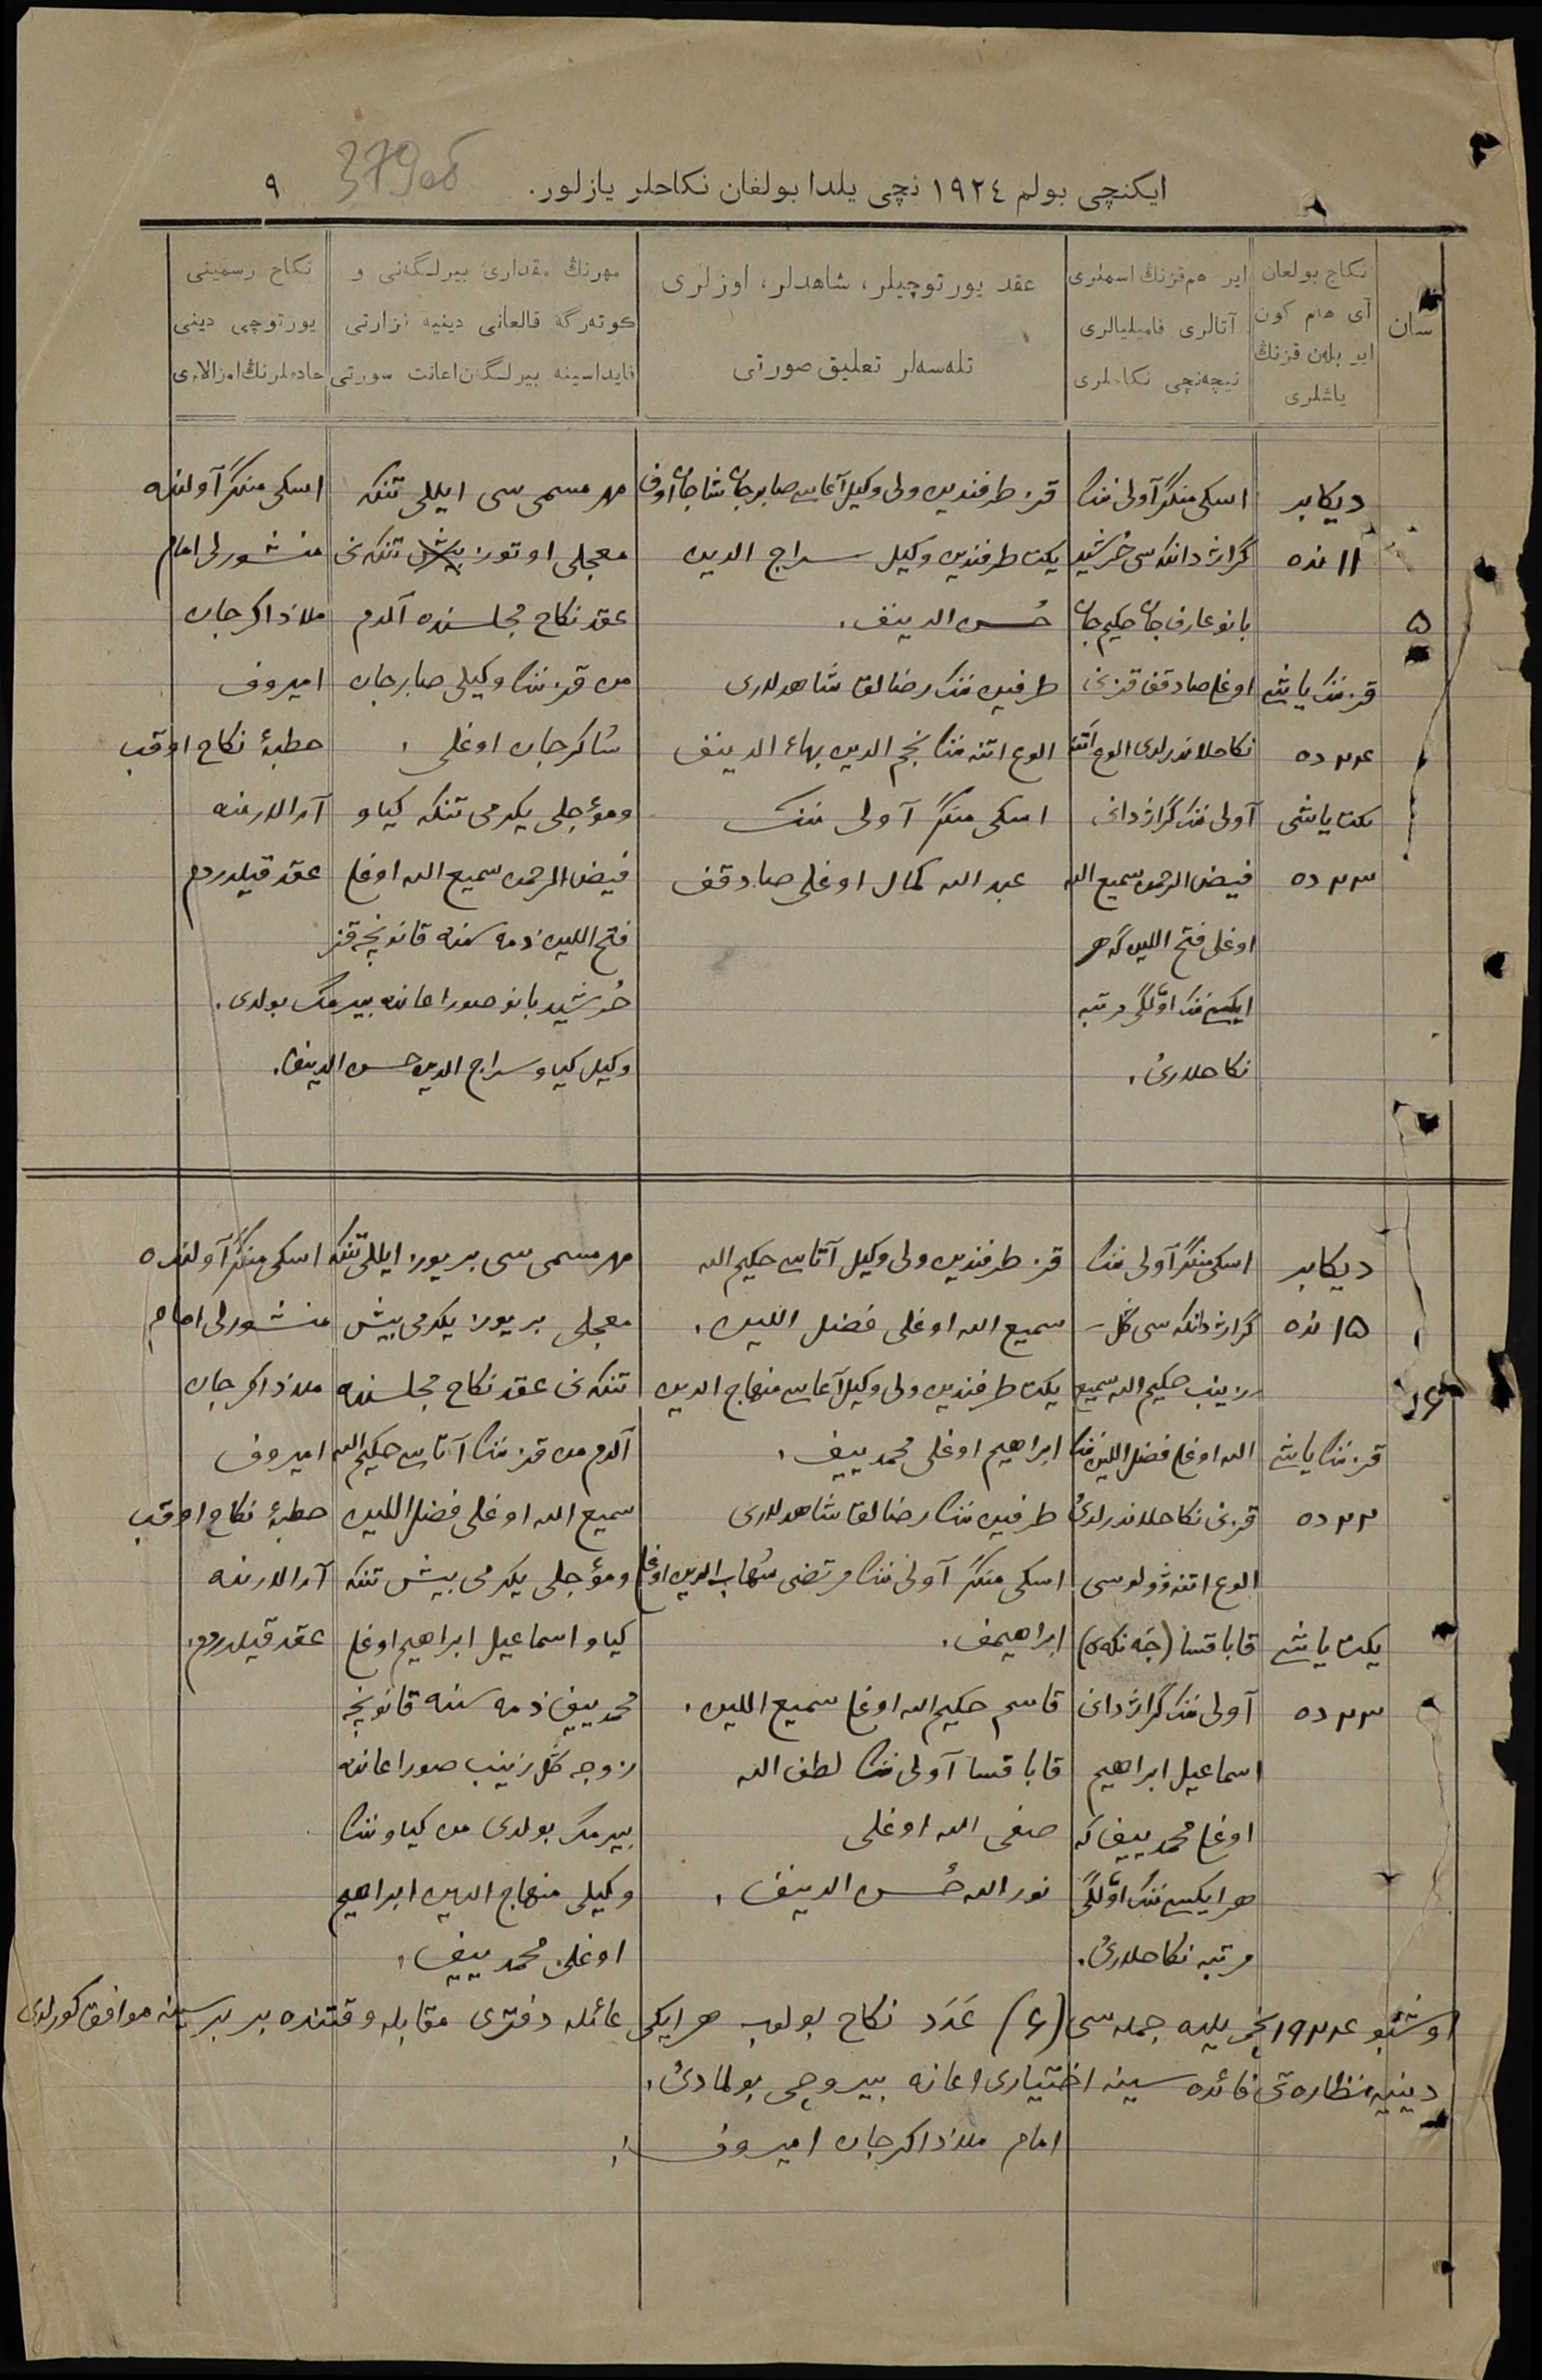 ایکنچی بولم ١٩٢٤ نچی یلدا بولغان نکاحلر یازلور.
379об
٩
سان
نکاح بولغان
آی هم کون
ایر بلەن قزنڭ
یاشلری
ایر هم قزنڭ اسملری
آتالری فامیلیالری
نیچەنچی نکاحلری
عقد یورتوچیلر، شاهدلر، اوزلری
تلەسەلر تعلیق صورتی
مهرنڭ مقداری بیرلگەنی و
کوتەرگە قالغانی دینیە نزارتی
فایداسینە بیرلگەن اعانت سورتی
نکاح رسمینی
یورتوچی دینی
خادملرنڭ امزالاری
۵
دیکابر
۱۱ نده
قزننك یاشی
۲۴ ده
یکت یاشی
۲۳ ده
اسکی منگر آولی ننك
گراژدانکه سی خُرشید
بانو عارف جان حکیم جان
اوغلی صادقف قزنی
نکاحلاندرلدی الوغ اتنه
آولی ننك گراژدانی
فیض الرحمن سمیع الله
اوغلی فتح اللین گه هر
ایکیسی ننك اوّلگی مرتبه
نکاحلاری.
قز طرفندین ولی وکیل آغاسی صابرجان شاجان اوف
یکت طرفندین وکیل سراج الدین
حُسن الدینف.
طرفین ننك رضالق شاهدلاری
الوغ اتنه ننك نجم الدین بهاء الدینف
اسکی منگر آولی ننك
عبد الله کمال اوغلی صادقف
مهر مسمی سی ایللی تنکه
معجلی اوتوز بیش تنکه نی
عقد نکاح مجلسنده آلدم
من قزننك وکیلی صابرجان
شاکرجان اوغلی.
ومؤجلی یکرمی تنکه کیاو
فیض الرحمن سمیع الله اوغلی
فتح اللین ذمه سنده قانونچه قز
خُرشید بانو صوراغانده بیرمك بولدی.
وکیل کیاو سراج الدین حسن الدینف.
اسکی منگر آولنده
منشورلی امام
ملا ذاکرجان
امیروف
خطبۀ نکاح اوقب
آرالارنده
عقد قیلدردم
۶
دیکابر
۱۵ نده
قزننك یاشی
۲۲ ده
یکت یاشی
۲۳ ده
اسکی منگر آولی ننك
گراژدانکه سی گل
زینب حکیم الله سمیع
الله اوغلی فضل اللین ننك
قزنی نکاحلاندرلدی
الوغ اتنه وولوسی
قاباقسا (جەنکەی)
آولی ننك گراژدانی
اسماعیل ابراهیم
اوغلی محمدییف که
هر ایکیسی ننك اوّلگی
مرتبه نکاحلاری.
قز طرفندین ولی وکیل آتاسی حکیم الله
سمیع الله اوغلی فضل اللین.
یکت طرفندین ولی وکیل آغاسی منهاج الدین
ابراهیم اوغلی محمدییف.
طرفین ننك رضالق شاهدلاری
اسکی منگر آولی ننك مرتضی شهاب الدین اوغلی
ابراهیمف.
قاسم حکیم الله اوغلی سمیع اللین.
قاباقسا آولی ننك لطف الله
صفی الله اوغلی
نورالله حُسن الدینف.
مهر مسمی سی بر یوز ایللی تنکه
معجلی بر یوز یکرمی بیش
تنکه نی عقد نکاح مجلسنده
آلدم من قزننك آتاسی حکیم الله
سمیع الله اوغلی فضل اللین
ومؤجلی یکرمی بیش تنکه
کیاو اسماعیل ابراهیم اوغلی
محمدییف ذمه سنده قانونچه
زوجه گل زینب صوراغانده
بیرمك بولدی من کیاوننك
وکیلی منهاج الدین ابراهیم
اوغلی محمدییف.
اسکی منگر آولنده
منشورلی امام
ملا ذاکرجان
امیروف
خطبۀ نکاح اوقب
آرالارنده
عقد قیلدردم.
اوشبو ۱۹۲۴ نچی یلده جمله سی (۶) عَدَد نکاح بولوب هر ایکی عائله دفتری مقابله وقتنده بر برسینه موافق کورلدی
دینیه نظاره تی فائده سینه اختیاری اعانه بیروچی بولمادی.
امام ملا ذاکرجان امیروف